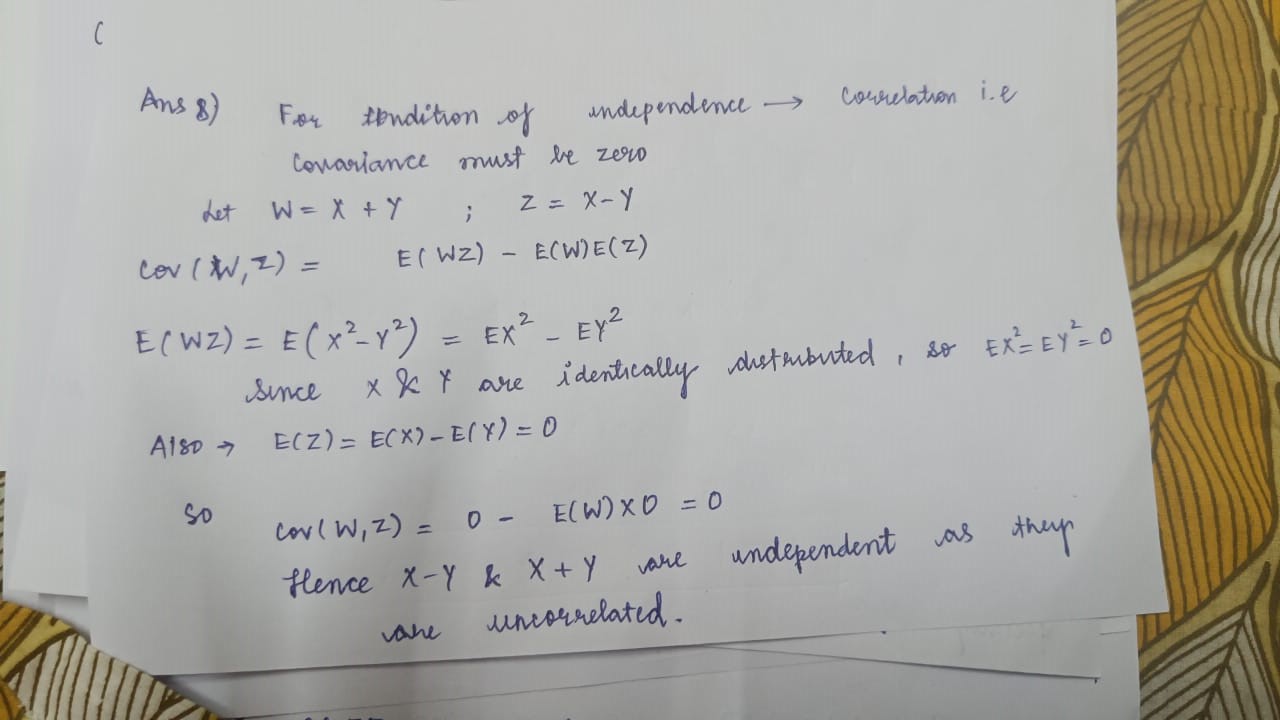 (
Ans 8) For condition of independence → correlation i.e
covariance must be zero
Let W = X + Y ; Z = X - Y
Cov (W, Z) = E( WZ) - E(W)E(Z)
E(WZ) = E(X²-Y²) = EX² - EY²
Since X & Y are identically distributed, so EX² = EY² = 0
Also → E(Z) = E(X) - E(Y) = 0
So
Cov(W, Z) = 0 - E(W) X 0 = 0
Hence X-Y & X + Y are independent as they
are uncorrelated.